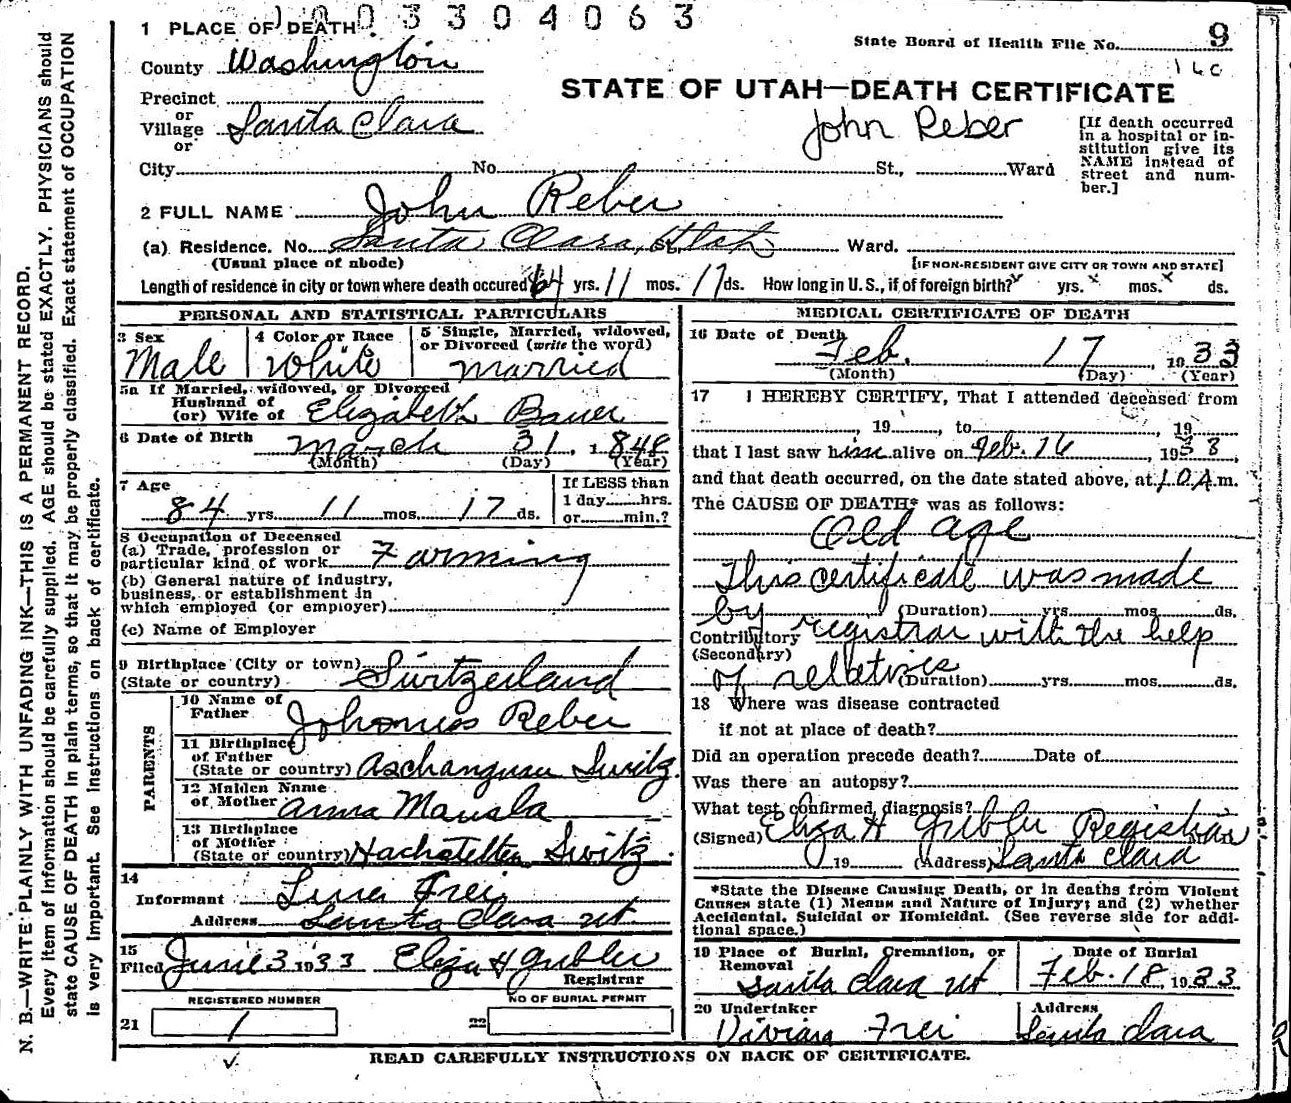 1003304063
1 PLACE OF DEATH
State Board of Health File No. 9
County Washington
STATE OF UTAH—DEATH CERTIFICATE
Precinct
or
Village Santa Clara
or
John Reber
[If death occurred in a hospital or institution give its NAME instead of street and number.]
City No. St., Ward
2 FULL NAME John Reber
(a) Residence. No. Santa Clara, Utah St., Ward.
(Usual place of abode)
[IF NON-RESIDENT GIVE CITY OR TOWN AND STATE]
Length of residence in city or town where death occured 64 yrs. 11 mos. 17 ds. How long in U.S., if of foreign birth? yrs. mos. ds.
PERSONAL AND STATISTICAL PARTICULARS
3 Sex
Male
4 Color or Race
White
5 Single, Married, widowed,
or Divorced (write the word)
married
5a If Married, widowed, or Divorced
Husband of
(or) Wife of Elizabeth Bauer
6 Date of Birth March 31, 1848
(Month) (Day) (Year)
7 Age
84 yrs. 11 mos. 17 ds.
If LESS than
1 day hrs.
or min.?
8 Occupation of Deceased
(a) Trade, profession or
particular kind of work Farming
(b) General nature of industry,
business, or establishment in
which employed (or employer)
(c) Name of Employer
9 Birthplace (City or town)
(State or country) Switzerland
PARENTS
10 Name of
Father Johannes Reber
11 Birthplace
of Father
(State or country) Switz.
12 Maiden Name
of Mother Anna
13 Birthplace
of Mother
(State or country) Switz.
14
Informant Lina Frei
Address Santa Clara Ut
15
Filed June 3 1933 Eliza H Gubler
Registrar
REGISTERED NUMBER
21 1
NO OF BURIAL PERMIT
22
MEDICAL CERTIFICATE OF DEATH
16 Date of Death
Feb. 17, 1933
(Month) (Day) (Year)
17 I HEREBY CERTIFY, That I attended deceased from
, 19, to , 19
that I last saw him alive on Feb. 16, 1933,
and that death occurred, on the date stated above, at 10 A.m.
The CAUSE OF DEATH* was as follows:
Old age
This certificate was made
by
(Duration) yrs. mos. ds.
Contributory registrar with the help
(Secondary)
of relatives
(Duration) yrs. mos. ds.
18 Where was disease contracted
if not at place of death?
Did an operation precede death? Date of
Was there an autopsy?
What test confirmed diagnosis?
(Signed) Eliza H Gubler Registrar
19 (Address) Santa Clara
*State the Disease Causing Death, or in deaths from Violent
Causes state (1) Means and Nature of Injury; and (2) whether
Accidental, Suicidal or Homicidal. (See reverse side for addi-
tional space.)
19 Place of Burial, Cremation, or
Removal
Santa Clara Ut
Date of Burial
Feb. 18, 1933
20 Undertaker
Vivian Frei
Address
Santa Clara
READ CAREFULLY INSTRUCTIONS ON BACK OF CERTIFICATE.
N. B.—WRITE PLAINLY WITH UNFADING INK—THIS IS A PERMANENT RECORD.
Every item of information should be carefully supplied. AGE should be stated EXACTLY. PHYSICIANS should
state CAUSE OF DEATH in plain terms, so that it may be properly classified. Exact statement of OCCUPATION
is very important. See Instructions on back of certificate.